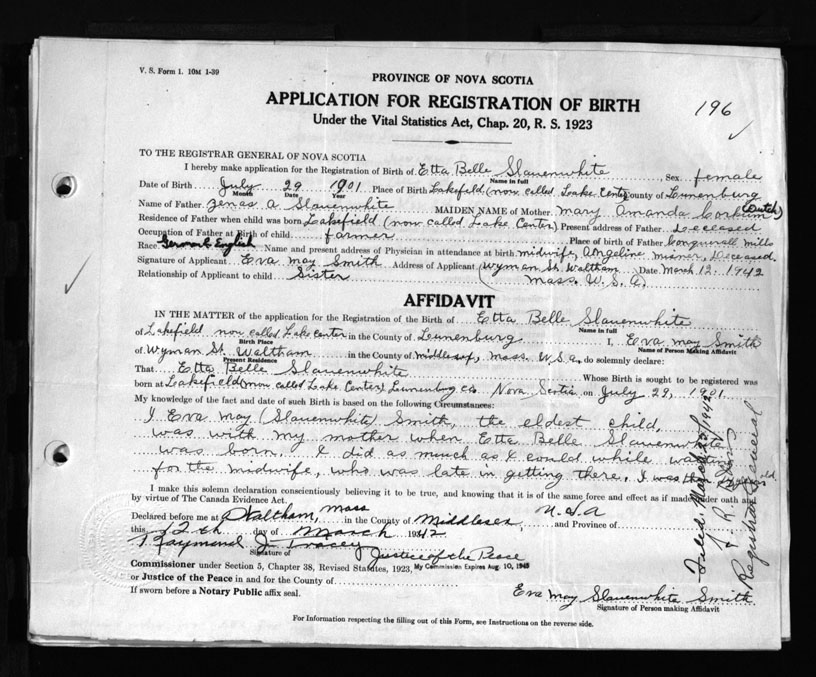 V. S. Form 1. 10M 1-39
PROVINCE OF NOVA SCOTIA
APPLICATION FOR REGISTRATION OF BIRTH
Under the Vital Statistics Act, Chap. 20, R. S. 1923
196
TO THE REGISTRAR GENERAL OF NOVA SCOTIA
I hereby make application for the Registration of Birth of Etta Belle Slauenwhite Sex female
Name in full
Date of Birth July 29 1901 Place of Birth Lakefield (now called Lake Center) County of Lunenburg
Month Date Year
(Dutch)
Name of Father Zenas A Slauenwhite MAIDEN NAME of Mother Mary Amanda Corkum
Residence of Father when child was born Lakefield (now called Lake Center) Present address of Father Deceased
Occupation of Father at Birth of child farmer Place of birth of Father Conquerall Mills
Race German & English Name and present address of Physician in attendance at birth midwife, Angeline Misner, Deceased.
Signature of Applicant Eva May Smith Address of Applicant (Wyman St. Waltham Date March 12, 1942
Relationship of Applicant to child Sister (Mass. U. S. A.
AFFIDAVIT
IN THE MATTER of the application for the Registration of the Birth of Etta Belle Slauenwhite
Name in full
of Lakefield now called Lake Center in the County of Lunenburg I, Eva May Smith
Birth Place Name of Person Making Affidavit
of Wyman St. Waltham in the County of Middlesex, Mass. U.S.A. do solemnly declare:
Present Residence
That Etta Belle Slauenwhite Whose Birth is sought to be registered was
born at Lakefield (now called Lake Center) Lunenburg Co. Nova Scotia on July 29, 1901
My knowledge of the fact and date of such Birth is based on the following Circumstances:
I Eva May (Slauenwhite) Smith, the eldest child,
was with my mother when Etta Belle Slauenwhite
was born. I did as much as I could while
for the midwife, who was late in getting there. I was
I make this solemn declaration conscientiously believing it to be true, and knowing that it is of the same force and effect as if made under oath and
by virtue of The Canada Evidence Act.
Declared before me at Waltham, Mass in the County of Middlesex, U.S.A and Province of
this 12th day of March 1942
Raymond J. Tracey Justice of the Peace
Signature of
Commissioner under Section 5, Chapter 38, Revised Statutes, 1923, My Commission Expires Aug. 10, 1945
or Justice of the Peace in and for the County of
If sworn before a Notary Public affix seal.
Eva May Slauenwhite Smith
Signature of Person making Affidavit
For Information respecting the filling out of this Form, see Instructions on the reverse side.
Filed March 1942
Registrar General